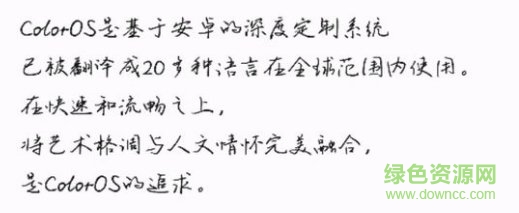 ColorOS是基于安卓的深度定制系统
已被翻译成20多种语言在全球范围内使用。
在快速和流畅之上,
将艺术格调与人文情怀完美融合,
是ColorOS的追求。
绿色资源网
www.downcc.com